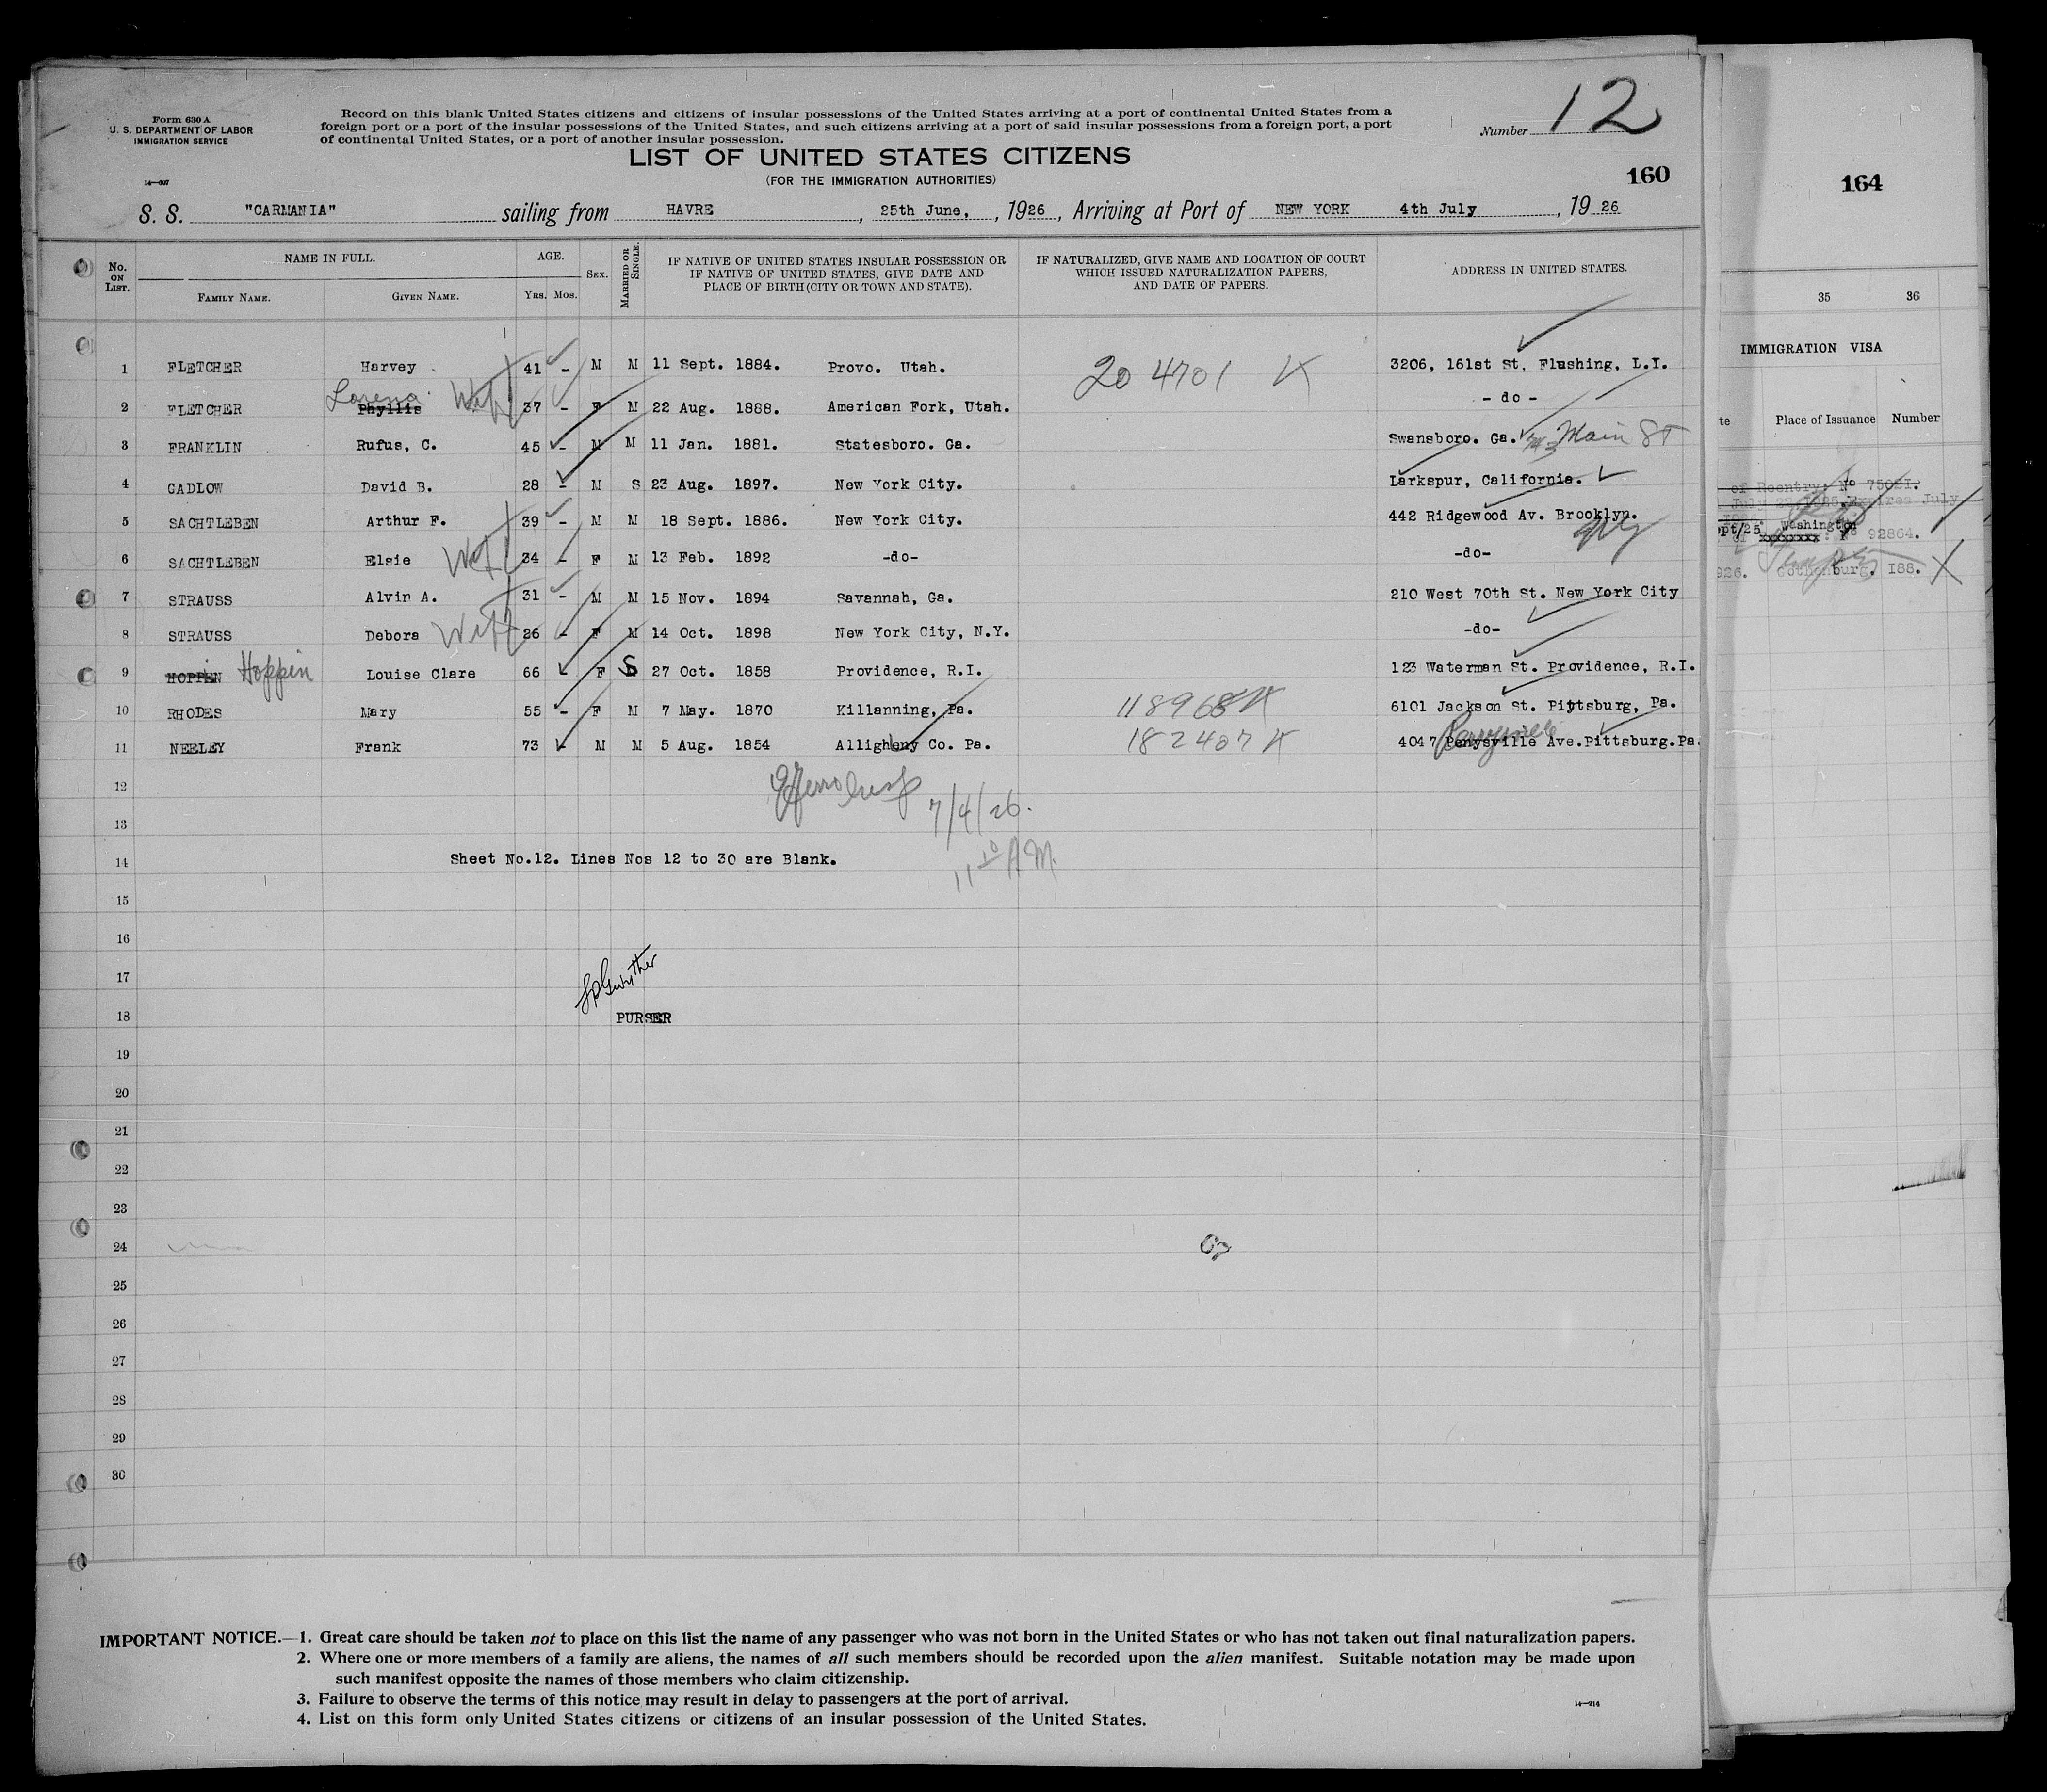 Form 630 A
U. S. DEPARTMENT OF LABOR
IMMIGRATION SERVICE
14—607
Record on this blank United States citizens and citizens of insular possessions of the United States arriving at a port of continental United States from a
foreign port or a port of the insular possessions of the United States, and such citizens arriving at a port of said insular possessions from a foreign port, a port
of continental United States, or a port of another insular possession.
Number 12
LIST OF UNITED STATES CITIZENS
(FOR THE IMMIGRATION AUTHORITIES)
160
S. S. "CARMANIA" sailing from HAVRE, 25th June, , 1926, Arriving at Port of NEW YORK 4th July, 1926
No. ON LIST.
NAME IN FULL.
FAMILY NAME. GIVEN NAME.
AGE.
YRS. MOS.
SEX.
MARRIED OR SINGLE.
IF NATIVE OF UNITED STATES INSULAR POSSESSION OR
IF NATIVE OF UNITED STATES, GIVE DATE AND
PLACE OF BIRTH (CITY OR TOWN AND STATE).
IF NATURALIZED, GIVE NAME AND LOCATION OF COURT
WHICH ISSUED NATURALIZATION PAPERS,
AND DATE OF PAPERS.
ADDRESS IN UNITED STATES.
1 FLETCHER Harvey 41 - M M 11 Sept. 1884. Provo. Utah. 204701 3206, 161st St, Flushing, L.I.
2 FLETCHER Phyllis Lorena Wife 37 - F M 22 Aug. 1888. American Fork, Utah. - do -
3 FRANKLIN Rufus, C. 45 - M M 11 Jan. 1881. Statesboro. Ga. Swansboro. Ga. Main St
4 GADLOW David B. 28 - M S 23 Aug. 1897. New York City. Larkspur, California.
5 SACHTLEBEN Arthur F. 39 - M M 18 Sept. 1886. New York City. 442 Ridgewood Av. Brooklyn. NY
6 SACHTLEBEN Elsie Wife 34 - F M 13 Feb. 1892 -do- -do-
7 STRAUSS Alvin A. 31 - M M 15 Nov. 1894 Savannah, Ga. 210 West 70th St. New York City
8 STRAUSS Debora Wife 26 - F M 14 Oct. 1898 New York City, N.Y. -do-
9 HOPPEN Hoppin Louise Clare 66 - F S 27 Oct. 1858 Providence, R.I. 123 Waterman St. Providence, R.I.
10 RHODES Mary 55 - F M 7 May. 1870 Killanning, Pa. 118968 6101 Jackson St. Pittsburg, Pa.
11 NEELEY Frank 73 - M M 5 Aug. 1854 Alligheny Co. Pa. 182407 4047 Penysville Perrysville Ave.Pittsburg.Pa.
12
7/4/26.
13
14 Sheet No.12. Lines Nos 12 to 30 are Blank.
11 10 A.M.
15
16
17
18 PURSER
19
20
21
22
23
24
25
26
27
28
29
30
IMPORTANT NOTICE.—1. Great care should be taken not to place on this list the name of any passenger who was not born in the United States or who has not taken out final naturalization papers.
2. Where one or more members of a family are aliens, the names of all such members should be recorded upon the alien manifest. Suitable notation may be made upon
such manifest opposite the names of those members who claim citizenship.
3. Failure to observe the terms of this notice may result in delay to passengers at the port of arrival.
4. List on this form only United States citizens or citizens of an insular possession of the United States.
14—214
164
35 36
IMMIGRATION VISA
te Place of Issuance Number
of Reentry. No 75021.
1926 Expires July
pt/25 Washington
xxxxxxxx No 92864.
926. Gothenburg. 188.